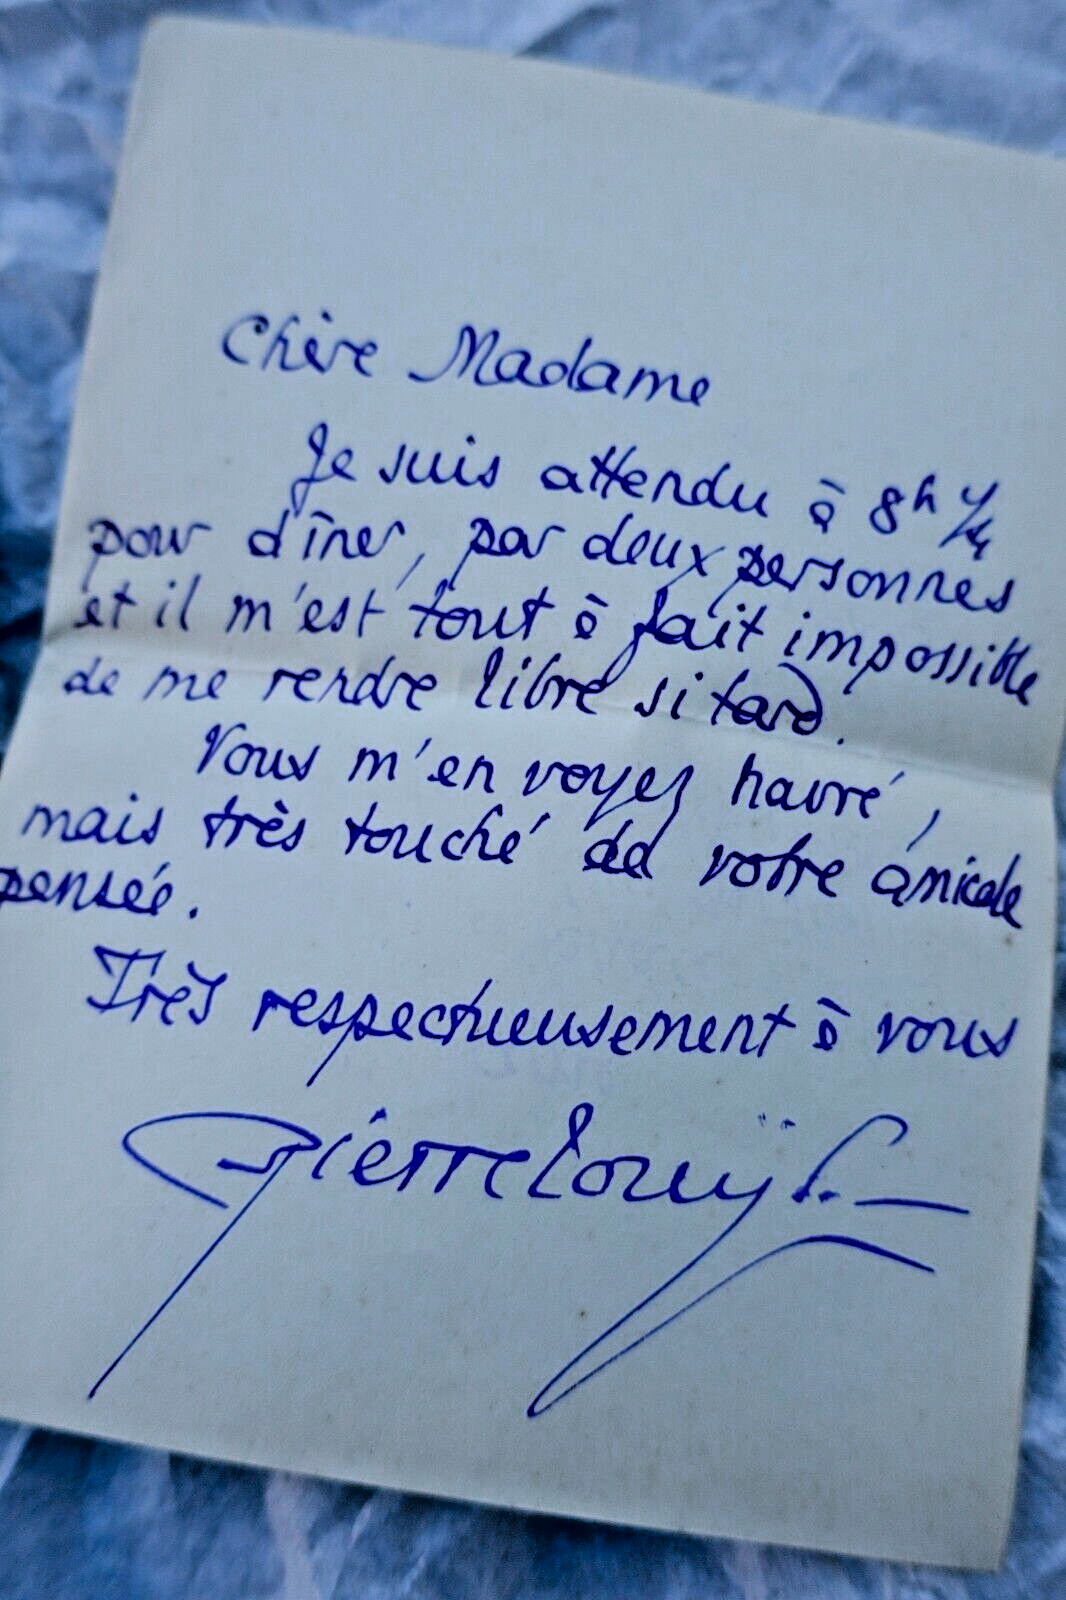 Chère Madame
Je suis attendu à 8h 1/4
pour dîner, par deux personnes
et il m'est tout à fait impossible
de me rendre libre si tard.
Vous m'en voyez navré,
mais très touché de votre amicale
pensée.
Très respectueusement à vous
Pierre Louÿs.